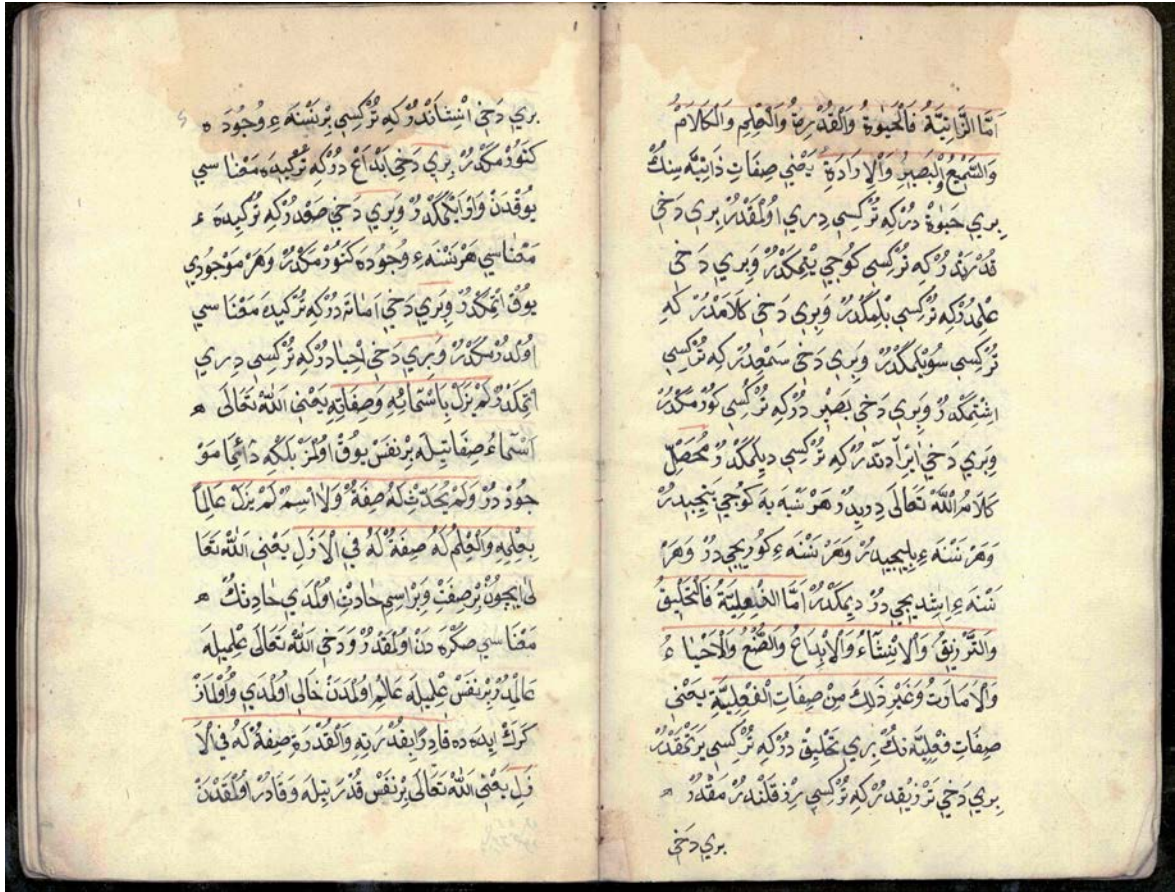 اَمَّا الذَّاتِيَّةُ فَالْحَيٰوةُ وَالْقُدْرَةُ وَالْعِلْمِ وَالْكَلَامُ
وَالسَّمْيعُ وَالْبَصِيرُ وَالْاِرَادَةِ يَعْنِي صِفَاتِ ذَاتِيَّه سِنِكْ
بِرِي حَيٰوةْ دُرْكِه تُرْكِسِي دِرِي اوُلْمَقْدُرْ بِرِي دَخِي
قُدْرَتْدُرْكِه تُرْكِسِي كُوجِي يَتْمِكْدُرْ وَبِرِي دَخِي
عِلْمِدُرْكِه تُرْكِسِي بِلْمِكْدُرْ وَبِرِي دَخِي كَلَامْدُرْ كِه
تُرْكِسِي سُويْلَمِكْدُرْ وَبِرِي دَخِي سَمْعِدُرْ كِه تُرْكِسِي
اِشْتِمِكْدُرْ وَبِرِي دَخِي بَصِيْر دُرْكِه تُرْكِسِي كُورْمِكْدُرْ
وَبِرِي دَخِي اِيرَادَتْدُرْكِه تُرْكِسِي دِيلَمِكْدُرْ مُحَصَّلْ
كَلَامُ اللّٰه تَعَالَى دِرِيدُرْ هَرْ نَسْنَه يَه كُوجِي يَتِيجِيدُرْ
وَهَرْ نَسْنَه ءِ بِلِيجِيدُرْ وَهَرْ نَسْنَه ءِ كُورِيجِي دُرْ وَهَرْ
نَسْنَه ءِ اِشِدِيجِي دُرْ دِيمِكْدُرْ اَمَّا الْفِعْلِيَّةُ فَالتَّخْلِيقُ
وَالتَّرْزِيقُ وَالْاِنْشَاءُ وَالْاِبْدَاعُ وَالصُّنْعُ وَالْاَحْيَاءُ
وَالْاَمَاتَتُ وَغَيْرِ ذٰلِكَ مِنْ صِفَاتِ الْفِعْلِيَّةِ يَعْنِي
صِفَاتِ فِعْلِيَّه نِكْ بِرِي تَخْلِيقْ دُرْكِه تُرْكِسِي يَرَتْمَقْدُرْ
بِرِي دَخِي تَرْزِيقِدُرْكِه تُرْكِسِي رِزِقْلَنْدُرْمَقْدُرْ
بري دخي
بِرِي دَخِي اِنْشَانْدُرْكِه تُرْكِسِي بِرْ نَسْنَه ءِ وُجُودَه
كَتُورْمِكْدُرْ بِرِي دَخِي اِبْدَاعْ دُرْكِه تُرْكِيدَه مَعْنَاسِي
يُوقْدَنْ وَارْ اِتْمِكْدُرْ وَبِرِي دَخِي صُعْدُرْكِه تُرْكِيدَه
مَعْنَاسِي هَرْ نَسْنَه ءِ وُجُودَه كَتُورْمِكْدُرْ وَهَرْ مَوْجُودِي
يُوقْ اِتْمِكْدُرْ وَبِرِي دَخِي اَمَاتَه دُرْكِه تُرْكِيدَه مَعْنَاسِي
اوُلْدُرْمِكْدُرْ وَبِرِي دَخِي اَحْيَادُرْكِه تُرْكِسِي دِرِي
اِتْمِكْدُرْ لَمْ يَزَلْ بِاَسْمَائِهِ وَصِفَاتِهِ يَعْنِي اللّٰه تَعَالَى
اَسْمَاءُ صِفَاتِيلَه بِرْ نَفَسْ يُوقْ اوُلْمَزْ بَلْكِه دَائِمَا مَوْ
جُودْ دُرْ وَلَمْ يُحَدَّثْ لَهُ صِفَةٌ وَلَا اِسْمٌ لَمْ يَزَلْ عَالِمًا
بِعِلْمِهِ وَالْعِلْمُ لَهُ صِفَةٌ لَهُ فِي الْاَزَلِ يَعْنِي اللّٰه تَعَا
لَى اِيچُونْ بِرْ صِفَتْ وَبِرْ اِسِمْ حَادِثْ اوُلْمَدِي حَادِثِنِكْ
مَعْنَاسِي صِكْرَه دَنْ اوُلْمَقْدُرْ وَدَخِي اللّٰه تَعَالَى عِلْمِيلَه
عَالِمْدُرْ بِرْ نَفَسْ عِلْمِيلَه عَالِمْ اوُلْمَدَنْ خَالِي اوُلْمَدِي وَاوُلْمَازْ
كَرَكْ اَبِدَه دَه قَادِرًا بِقُدْرَتِهِ وَالْقُدْرَةِ صِفَةٌ لَهُ فِي الْاَ
زَلِ يَعْنِي اللّٰه تَعَالَى بِرْ نَفَسْ قُدْرَتِيلَه وَقَادِرْ اوُلْمَقْدَنْ